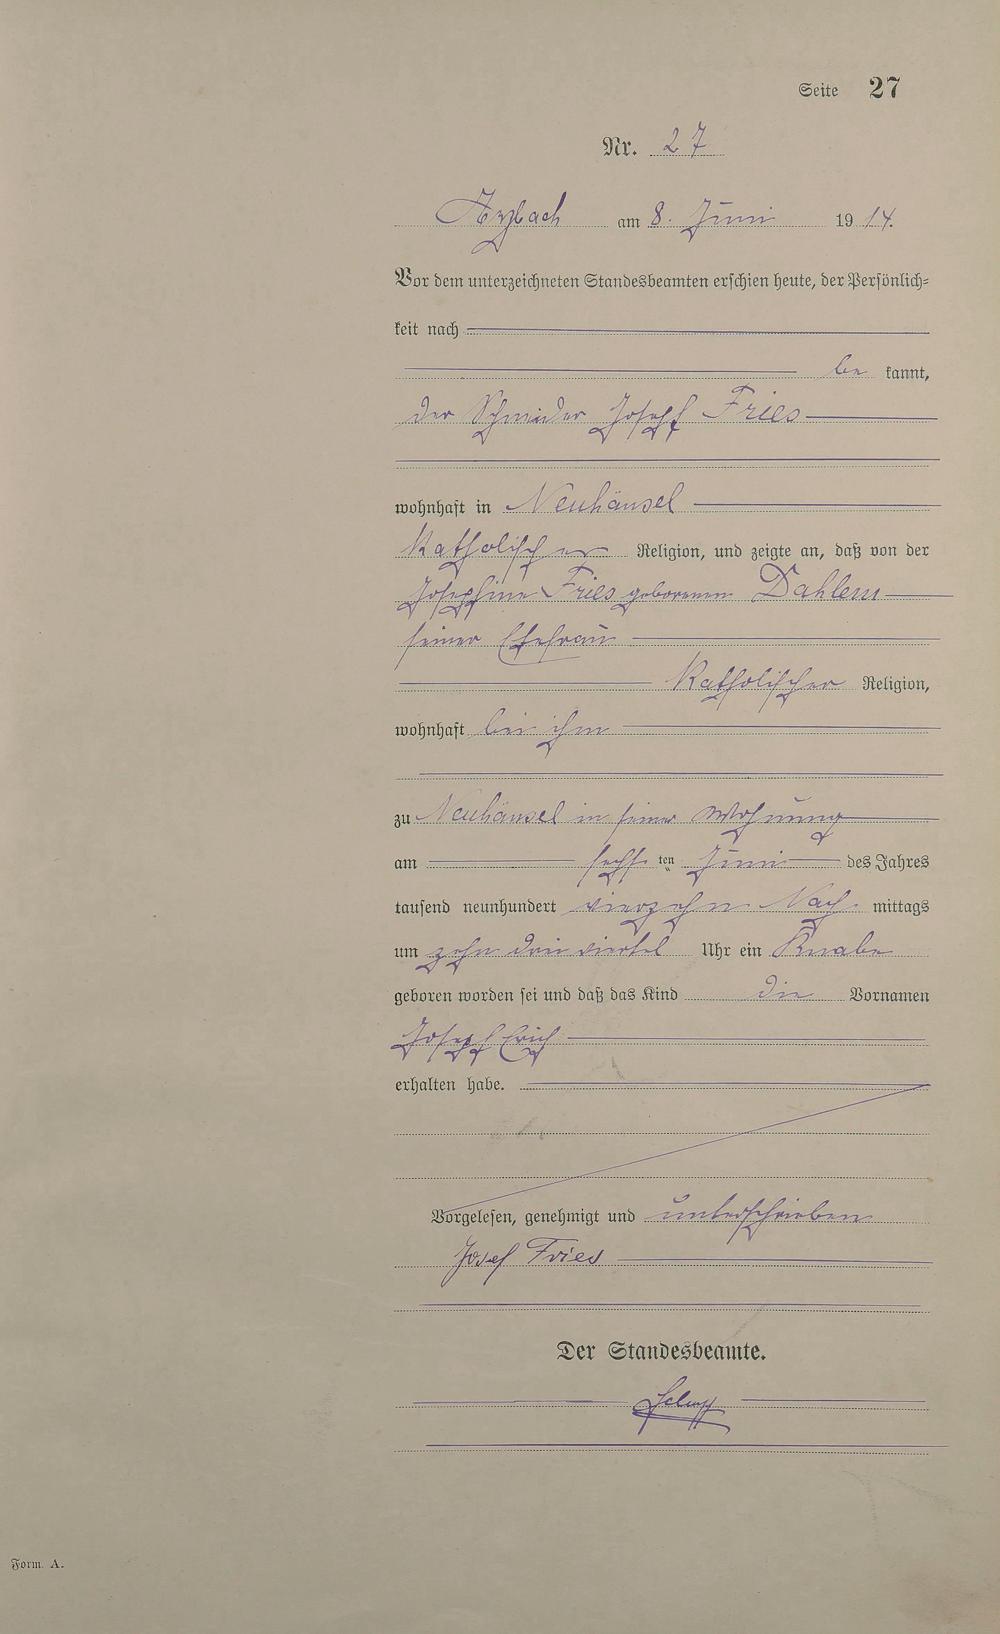 Seite 27
Nr. 27
Arzbach am 8. Juni 1914.
Vor dem unterzeichneten Standesbeamten erschien heute, der Persönlich-
keit nach
be kannt,
der Schneider Joseph Fries
wohnhaft in Neuhäusel
Katholischer Religion, und zeigte an, daß von der
Josephine Fries geborenen Dahlem
seiner Ehefrau
Katholischer Religion,
wohnhaft bei ihm
zu Neuhäusel in seiner Wohnung
am sechs ten Juni des Jahres
tausend neunhundert vierzehn Nach mittags
um zehn drei viertel Uhr ein Knabe
geboren worden sei und daß das Kind die Vornamen
Joseph Erich
erhalten habe.
Vorgelesen, genehmigt und unterschrieben
Josef Fries
Der Standesbeamte.
Form. A.